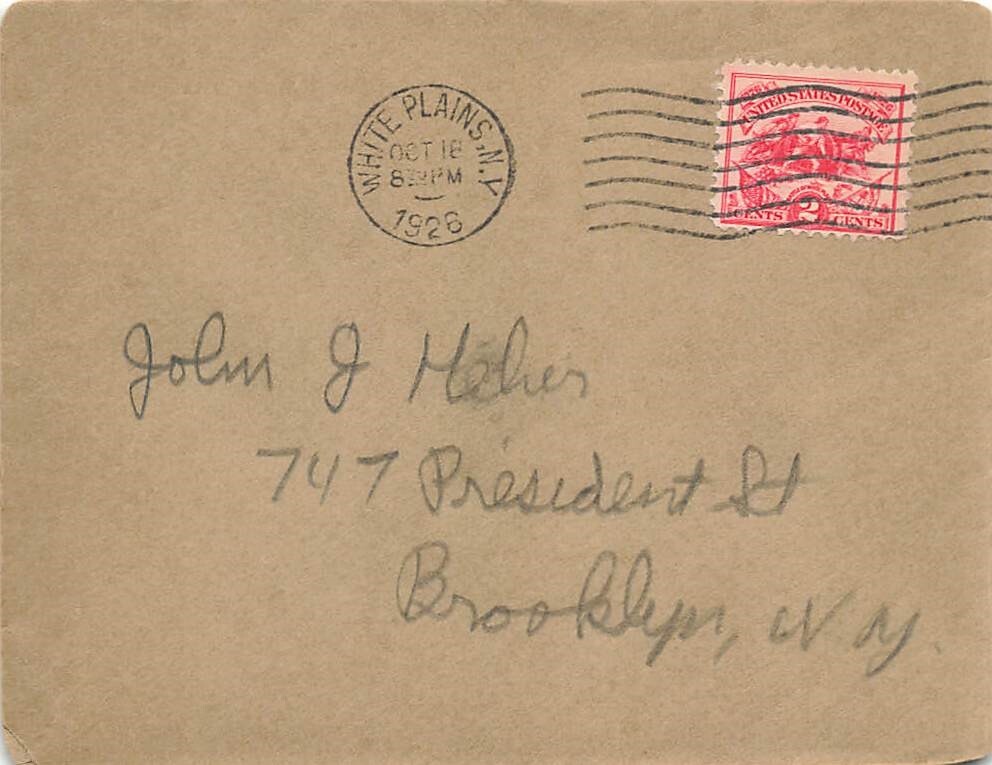 WHITE PLAINS, N.Y.
OCT 18
8 PM
1926
UNITED STATES POSTAGE
CENTS 2 CENTS
John J
747 President St
Brooklyn, N.Y.